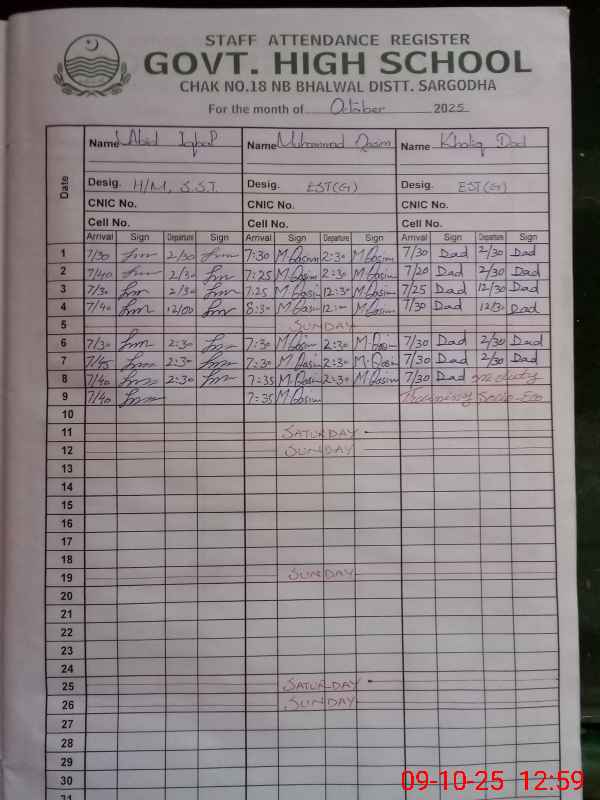 STAFF ATTENDANCE REGISTER
GOVT. HIGH SCHOOL
CHAK NO.18 NB BHALWAL DISTT. SARGODHA
For the month of October 2025
Date
Name Abid Iqbal Name Muhammad Qasim Name Khaliq Dad
Desig. H/M, S.S.T. Desig. EST(G) Desig. EST(G)
CNIC No. CNIC No. CNIC No.
Cell No. Cell No. Cell No.
Arrival Sign Departure Sign Arrival Sign Departure Sign Arrival Sign Departure Sign
1 7/30 2/30 7:30 M Qasim 2:30 M Qasim 7/30 Dad 2/30 Dad
2 7/40 2/30 7:25 M Qasim 2:30 M Qasim 7/20 Dad 2/30 Dad
3 7/30 2/30 7:25 M Qasim 12:30 M Qasim 7/25 Dad 12/30 Dad
4 7/40 12/00 8:30 M Qasim M Qasim 7/30 Dad 12/30 Dad
5 SUNDAY
6 7/30 2:30 7:30 M Qasim 2:30 M Qasim 7/30 Dad 2/30 Dad
7 7/45 2:30 7:30 M Qasim 2:30 M Qasim 7/30 Dad 2/30 Dad
8 7/40 2:30 7:35 M Qasim 2:30 M Qasim 7/30 Dad on duty
9 7/40 7:35 M Qasim Training
10
11 SATURDAY
12 SUNDAY
13
14
15
16
17
18
19 SUNDAY
20
21
22
23
24
25 SATURDAY
26 SUNDAY
27
28
29
30
31
09-10-25 12:59